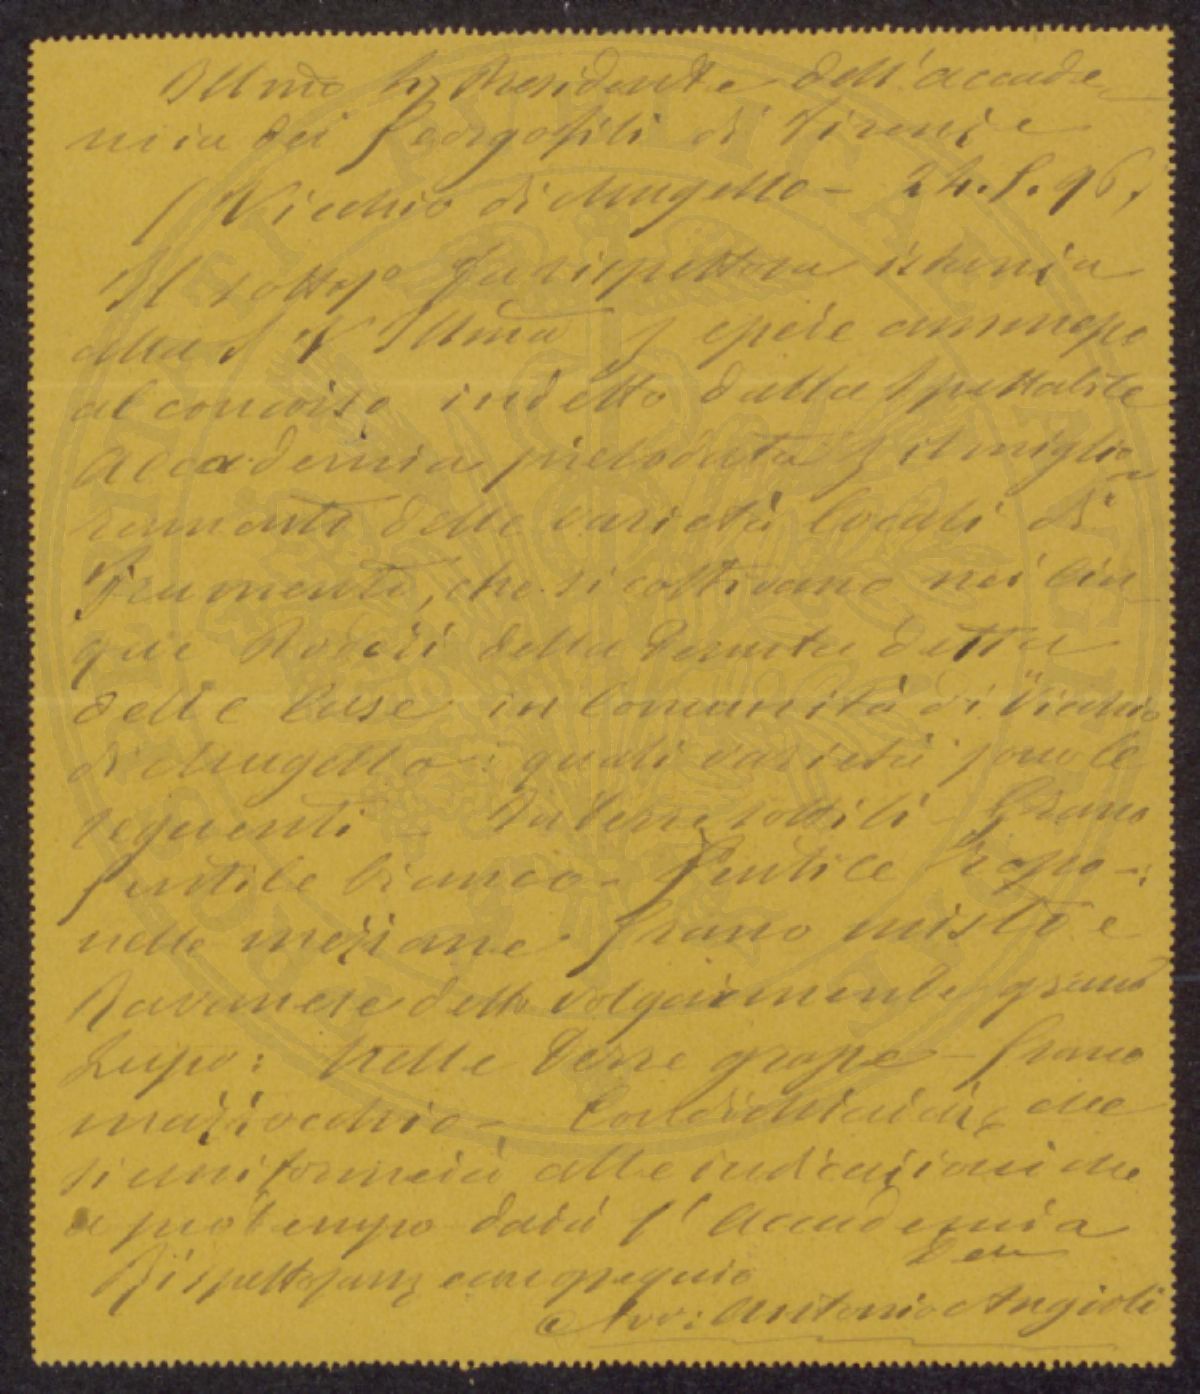 Illmo Sr Presidente dell'accade-
mia dei Georgofili di Firenze
Vicchio di Mugello - 24.8.96,
Il sottosº fa rispettosa istanza
alla S V Illma p esser ammesso
al concorso indetto dalla Spettabile
Accademia prelodata p il miglio
ramento delle varietà locali di
Frumento, che si coltivano nei cin
que Poderi della Tenuta detta
delle Case in Comunità di Vicchio
di Mugello: quali varietà sono le
seguenti - terre sottili - Grano
gentile bianco - Gentile rosso -:
nelle mezzane grano misto e
Ravanese detto volgarmente grano
Lupo: Nelle Terre grosse - grano
mazzocchio - che
si uniformerà alle indicazioni che
a suo tempo darà l'Accademia
Rispettosamz ossequio Dev
Avv: Antonio Angioli